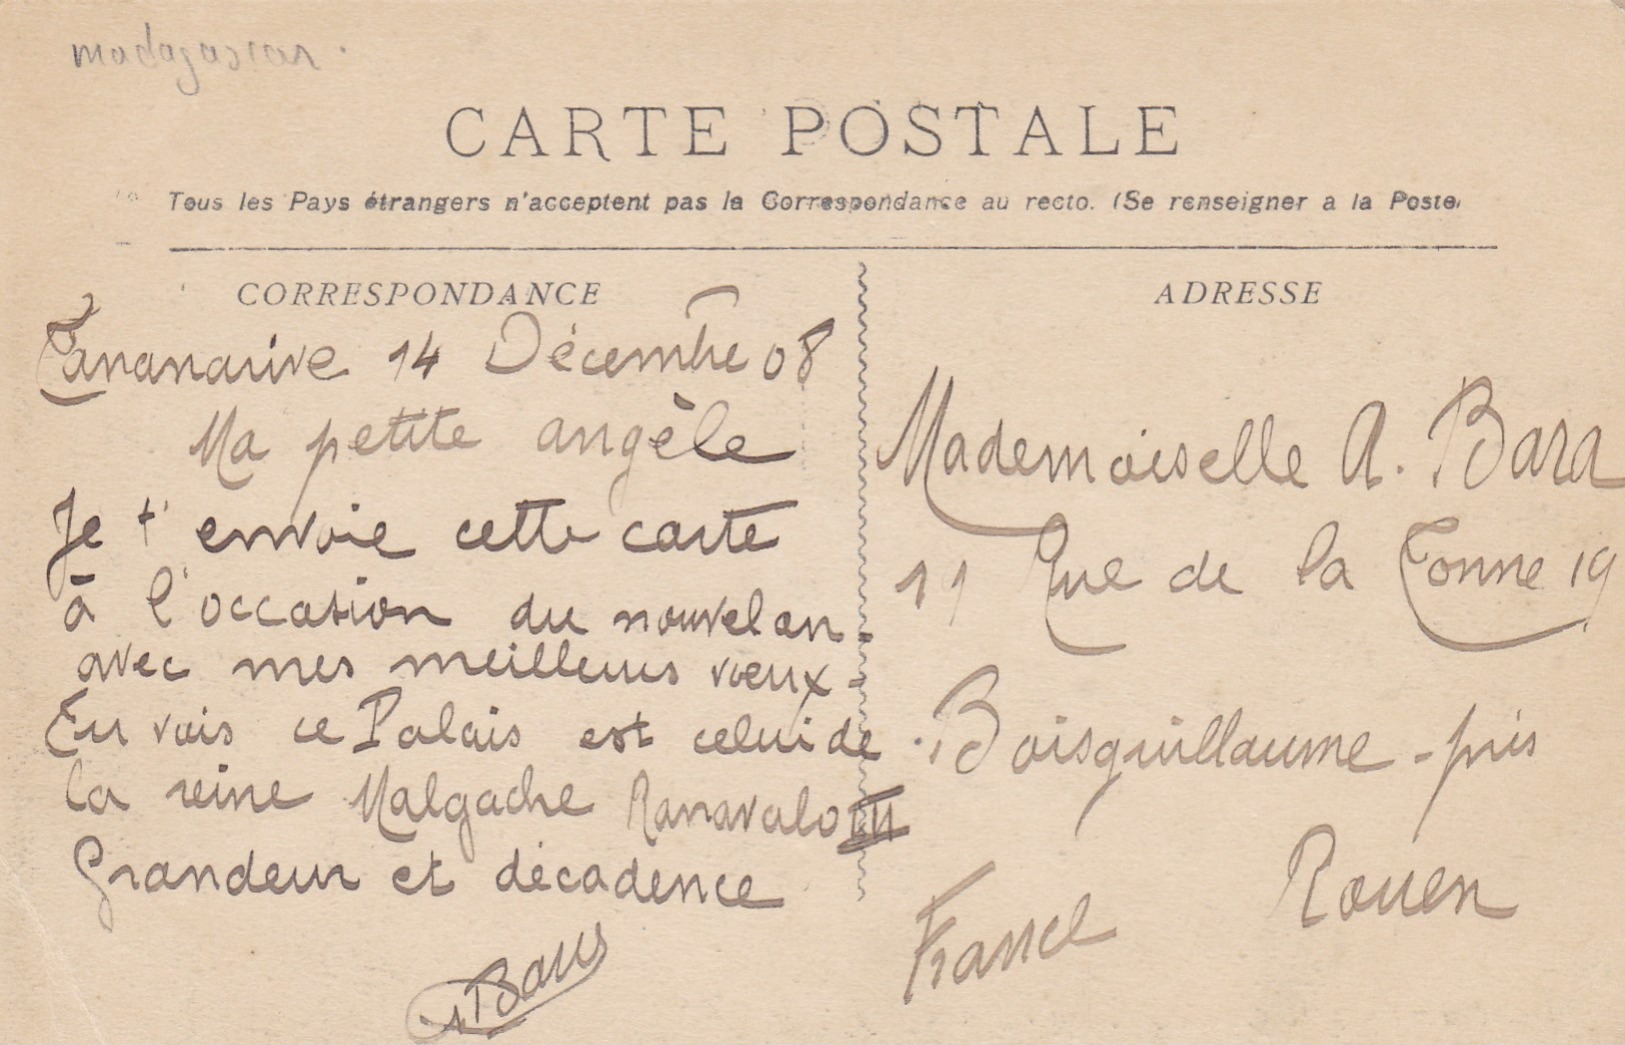 madagascar.
CARTE POSTALE
Tous les Pays étrangers n'acceptent pas la Correspondance au recto. (Se renseigner a la Poste
CORRESPONDANCE
Tananarive 14 Décembre 08
Ma petite angèle
Je t'envoie cette carte
à l'occasion du nouvel an.
avec mes meilleurs vœux -
Tu vois ce Palais est celui de
la reine Malgache Ranavalo III
Grandeur et décadence
ADRESSE
Mademoiselle A. Bara
19 Rue de la Tonne 19
Boisguillaume - près
Rouen
France